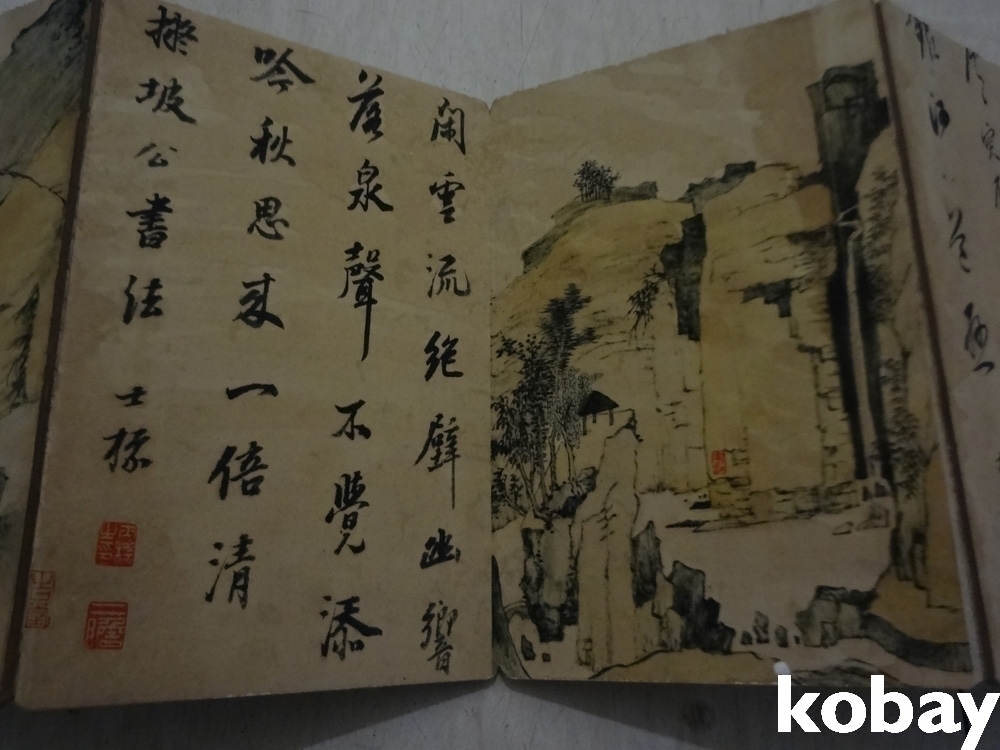 閑雲流絶壁幽響
落泉聲不覺添
吟秋思來一倍清
擬坡公書法 士標
kobay